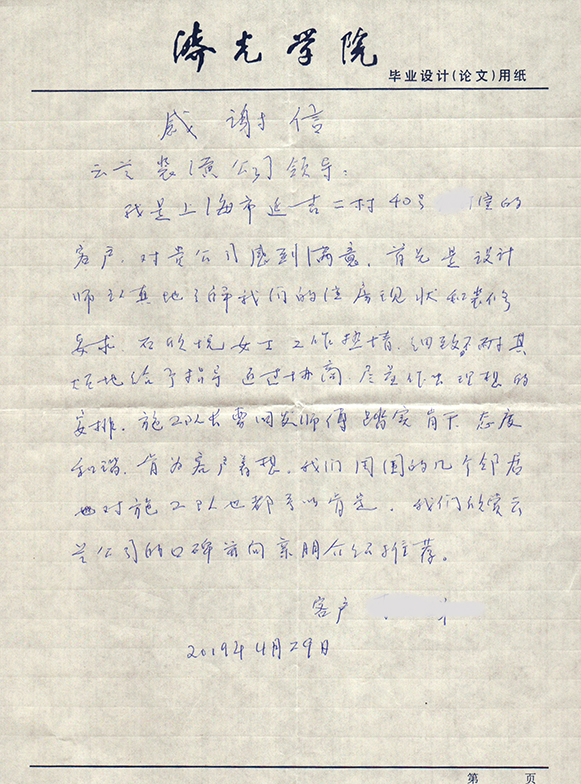 济光学院
毕业设计(论文)用纸
感谢信
云兰装潢公司领导:
我是上海市延吉二村40号 室的
客户,对贵公司感到满意。首先是设计
师认真地了解我们的住房现状和装修
要求,石欣悦女士工作热情,细致,不耐其
烦地给予指导,通过协商,尽量作出理想的
安排。施工队长曹网发师傅踏实肯干,态度
和蔼,肯为客户着想,我们周围的几个邻居
对施工队也都予以肯定。我们欣赏云
兰公司的口碑并向亲朋介绍推荐。
客户
2019年4月29日
第 页